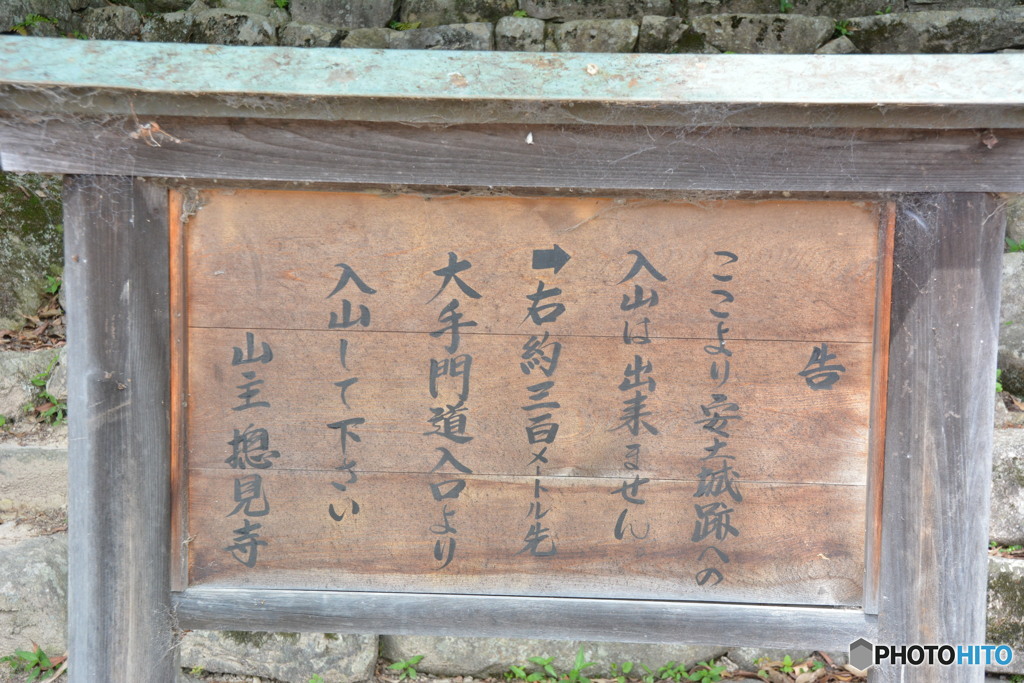 告
ここより安土城跡への
入山は出来ません
➡右約三百メートル先
大手門道入口より
入山して下さい
山主摠見寺
PHOTOHITO